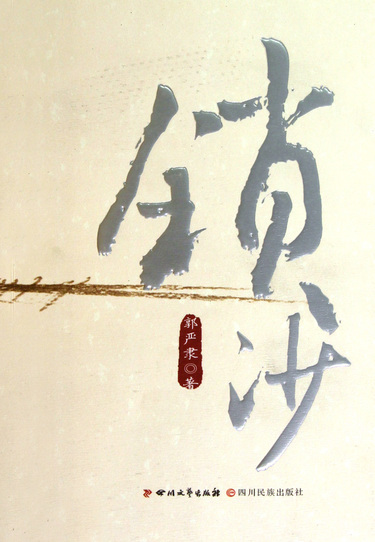 锁沙
郭严隶◎著
四川文艺出版社 四川民族出版社